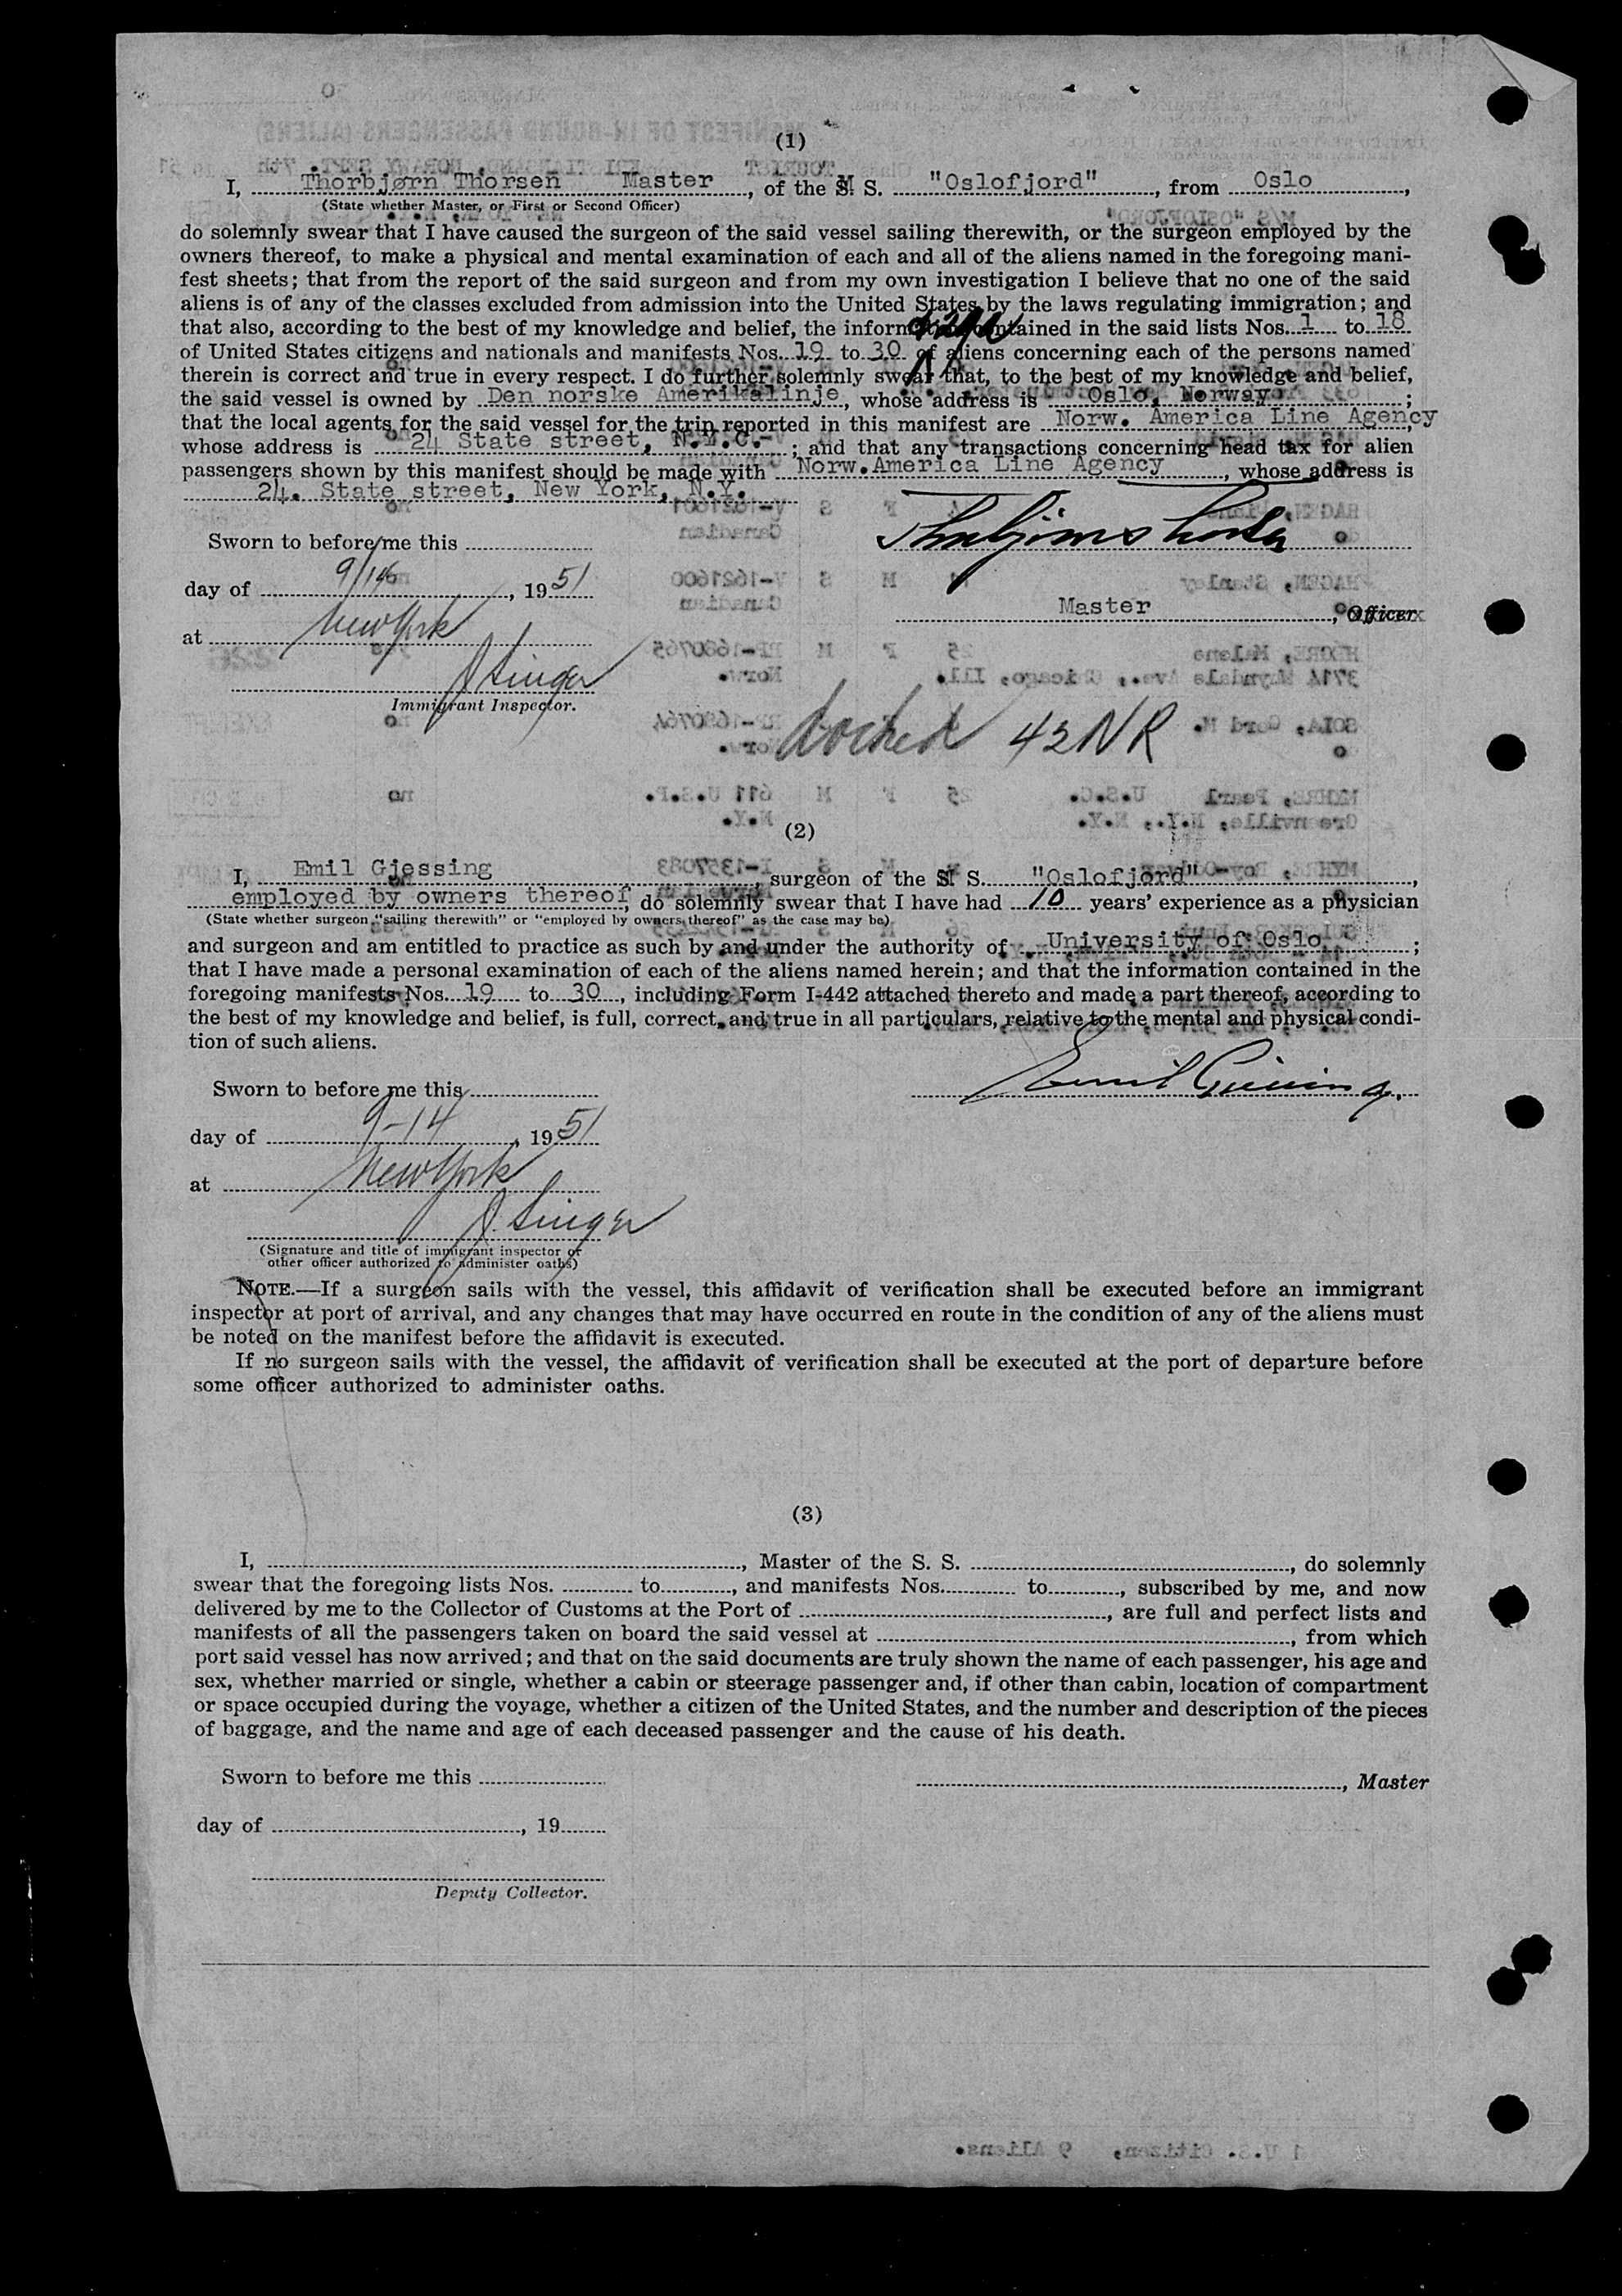 (1)
I, Thorbjørn Thorsen Master, of the M S. "Oslofjord", from Oslo,
(State whether Master, or First or Second Officer)
do solemnly swear that I have caused the surgeon of the said vessel sailing therewith, or the surgeon employed by the
owners thereof, to make a physical and mental examination of each and all of the aliens named in the foregoing mani-
fest sheets; that from the report of the said surgeon and from my own investigation I believe that no one of the said
aliens is of any of the classes excluded from admission into the United States by the laws regulating immigration; and
that also, according to the best of my knowledge and belief, the information contained in the said lists Nos. 1 to 18
of United States citizens and nationals and manifests Nos. 19 to 30 of aliens concerning each of the persons named
therein is correct and true in every respect. I do further solemnly swear that, to the best of my knowledge and belief,
the said vessel is owned by Den norske Amerikalinje, whose address is Oslo, Norway;
that the local agents for the said vessel for the trip reported in this manifest are Norw. America Line Agency,
whose address is 24 State street, N.Y.C.; and that any transactions concerning head tax for alien
passengers shown by this manifest should be made with Norw.America Line Agency, whose address is
24. State street, New York, N.Y.
Sworn to before me this
day of 9/14, 1951
Master, Officer
at New York
J Singer
Immigrant Inspector.
docked 42NR
(2)
I, Emil Gjessing, surgeon of the M S. "Oslofjord",
employed by owners thereof, do solemnly swear that I have had 10 years' experience as a physician
(State whether surgeon "sailing therewith" or "employed by owners thereof" as the case may be)
and surgeon and am entitled to practice as such by and under the authority of University of Oslo;
that I have made a personal examination of each of the aliens named herein; and that the information contained in the
foregoing manifests Nos. 19 to 30, including Form I-442 attached thereto and made a part thereof, according to
the best of my knowledge and belief, is full, correct, and true in all particulars, relative to the mental and physical condi-
tion of such aliens.
Sworn to before me this
Emil Gjessing.
day of 9-14, 1951
at New York
J. Singer
(Signature and title of immigrant inspector or
other officer authorized to administer oaths)
NOTE.—If a surgeon sails with the vessel, this affidavit of verification shall be executed before an immigrant
inspector at port of arrival, and any changes that may have occurred en route in the condition of any of the aliens must
be noted on the manifest before the affidavit is executed.
If no surgeon sails with the vessel, the affidavit of verification shall be executed at the port of departure before
some officer authorized to administer oaths.
(3)
I, , Master of the S. S. , do solemnly
swear that the foregoing lists Nos. to , and manifests Nos. to , subscribed by me, and now
delivered by me to the Collector of Customs at the Port of , are full and perfect lists and
manifests of all the passengers taken on board the said vessel at , from which
port said vessel has now arrived; and that on the said documents are truly shown the name of each passenger, his age and
sex, whether married or single, whether a cabin or steerage passenger and, if other than cabin, location of compartment
or space occupied during the voyage, whether a citizen of the United States, and the number and description of the pieces
of baggage, and the name and age of each deceased passenger and the cause of his death.
Sworn to before me this
, Master
day of , 19
Deputy Collector.